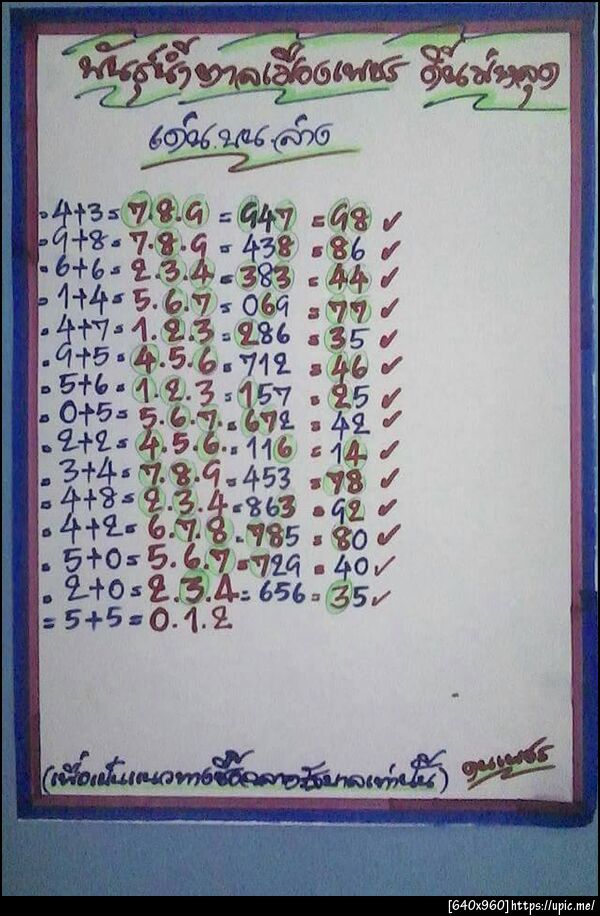 พันธุ์น้ำตาลเมืองเพชร ดิ้นไม่หลุด
เด่น.บน.ล่าง
- 4+3= 7.8.9 = 947 = 98 ✓
- 9+8= 7.8.9 = 438 = 86 ✓
- 6+6= 2.3.4 = 383 = 44 ✓
- 1+4= 5.6.7 = 069 = 77 ✓
- 4+7= 1.2.3 = 286 = 35 ✓
- 9+5= 4.5.6 = 712 = 46 ✓
= 5+6= 1.2.3 = 157 = 25 ✓
- 0+5= 5.6.7. = 672 = 42 ✓
- 2+2= 4.5.6. = 116 = 14 ✓
- 3+4= 7.8.9 = 453 = 78 ✓
- 4+8= 2.3.4 = 863 = 92 ✓
. 4+2= 6.7.8. 785 = 80 ✓
. 5+0= 5.6.7 = 729 = 40 ✓
. 2+0= 2.3.4 = 656 = 35 ✓
= 5+5= 0.1.2
(เพื่อเป็นแนวทางซื้อสลากรัฐบาลเท่านั้น) คนเพชร
[640x960]https://upic.me/